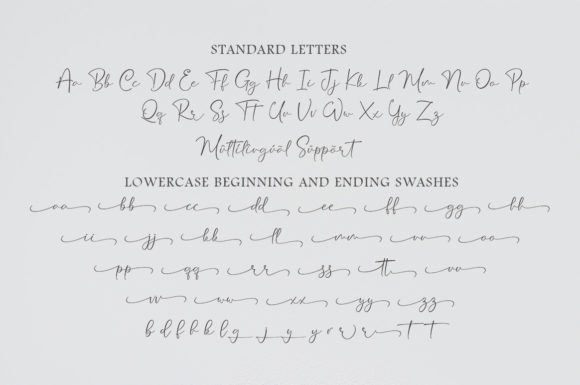 STANDARD LETTERS
Aa Bb Cc Dd Ee Ff Gg Hh Ii Jj Kk Ll Mm Nn Oo Pp
Qq Rr Ss Tt Uu Vv Ww Xx Yy Zz
Múltilingúàl Süppört
LOWERCASE BEGINNING AND ENDING SWASHES
aa bb cc dd ee ff gg hh
ii jj kk ll mm nn oo
pp qq rr ss tt uu
vv ww xx yy zz
b d f h k l g j y y r